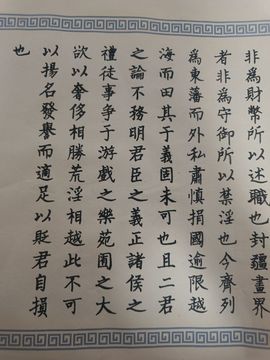 非為財幣所以述職也封疆畫界
者非為守御所以禁淫也今齊列
為東藩而外私肅慎捐國逾限越
海而田其于義固未可也且二君
之論不務明君臣之義正諸侯之
禮徒事爭于游戲之樂苑囿之大
欲以奢侈相勝荒淫相越此不可
以揚名發譽而適足以貶君自損
也